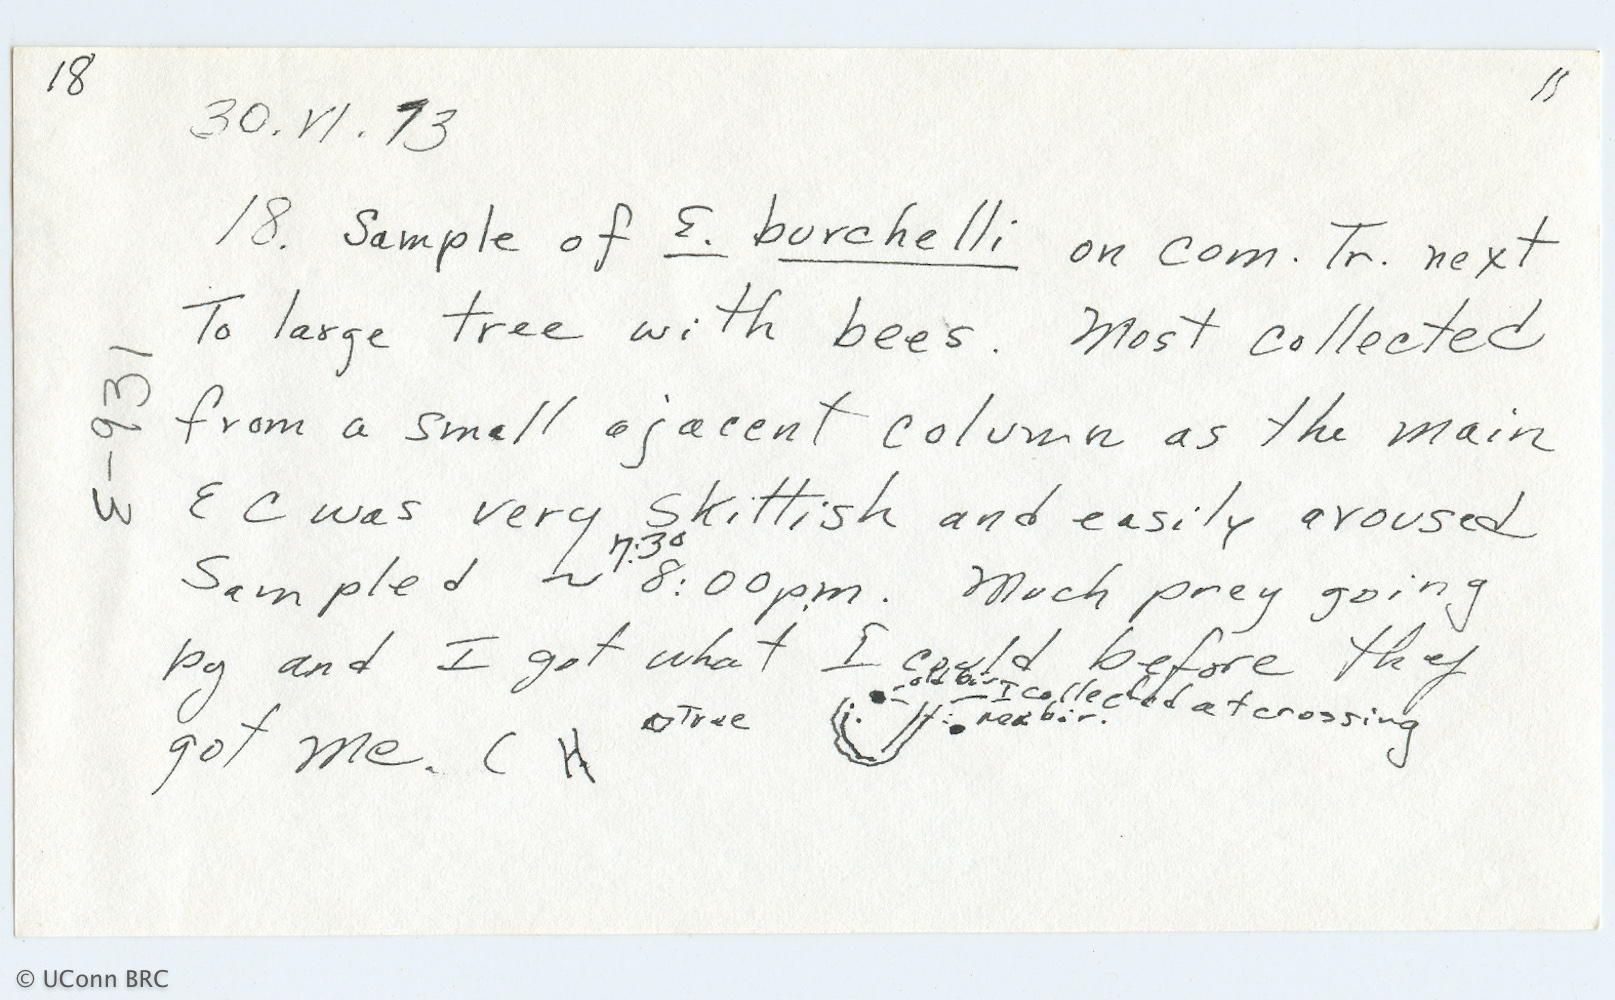 18
11
30.VI.73
18. Sample of E. burchelli on com. Tr. next
To large tree with bees. Most collected
from a small ajacent column as the main
E C was very skittish and easily aroused
7:30
Sampled ~ 8:00pm. Much prey going
by and I got what I could before they
old biv
I collected at crossing
Tree
new biv.
got me. (
E-931
© UConn BRC